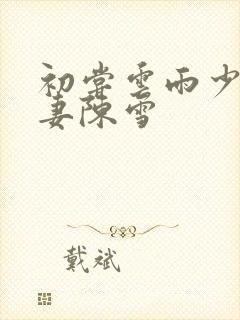 初尝雲雨少
妻陳雪
戴斌